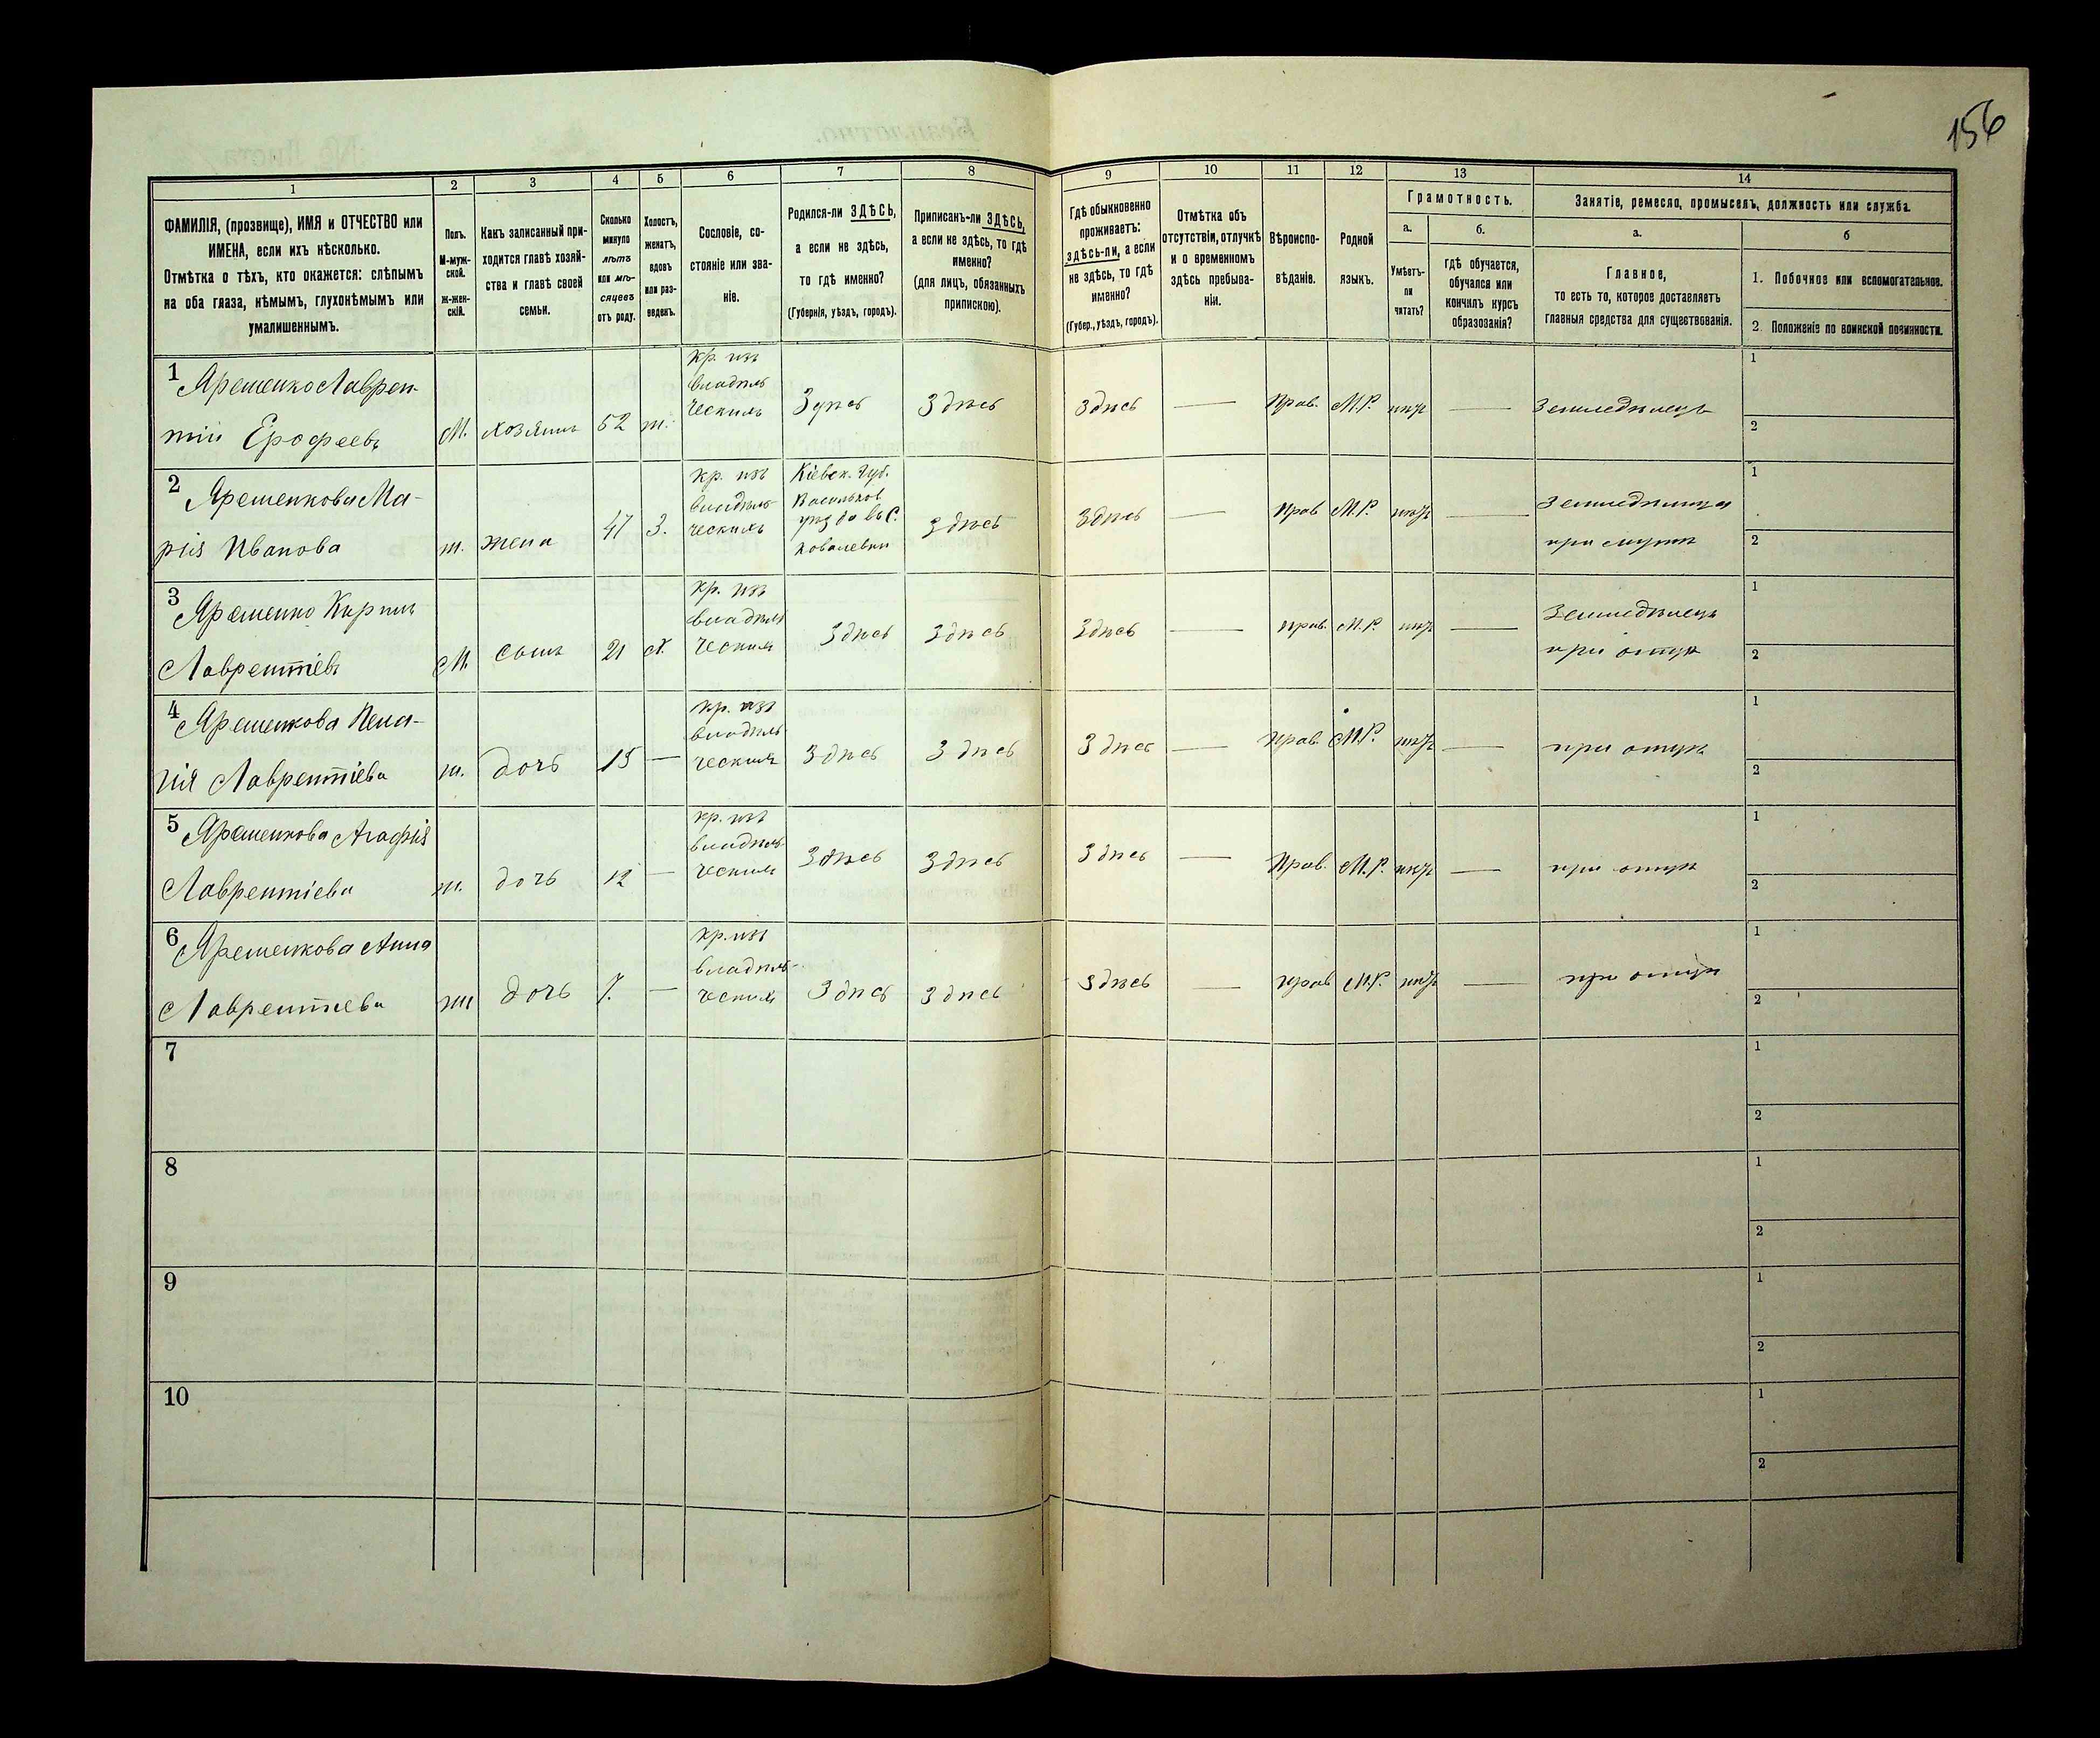 156
1 2 3 4 5 6 7 8 9 10 11 12 13 14
ФАМИЛІЯ, (прозвище), ИМЯ и ОТЧЕСТВО или
ИМЕНА, если ихъ нѣсколько.
Отмѣтка о тѣхъ, кто окажется: слѣпымъ
на оба глаза, нѣмымъ, глухонѣмымъ или
умалишеннымъ.
Полъ.
М-муж-
ской.
Ж-жен-
скій.
Какъ записанный при-
ходится главѣ хозяй-
ства и главѣ своей
семьи.
Сколько
минуло
лѣтъ
или мѣ-
сяцевъ
отъ роду.
Холостъ,
женатъ,
вдовъ
или раз-
веденъ.
Сословіе, со-
стояніе или зва-
ніе.
Родился-ли ЗДѢСЬ,
а если не здѣсь,
то гдѣ именно?
(Губернія, уѣздъ, городъ).
Приписанъ-ли ЗДѢСЬ,
а если не здѣсь, то гдѣ
именно?
(для лицъ, обязанныхъ
припискою).
Гдѣ обыкновенно
проживаетъ:
здѣсь-ли, а если
не здѣсь, то гдѣ
именно?
(Губер., уѣздъ, городъ).
Отмѣтка объ
отсутствіи, отлучкѣ
и о временномъ
здѣсь пребыва-
ніи.
Вѣроиспо-
вѣданіе.
Родной
языкъ.
Грамотность.
а.
Умѣетъ-
ли
читать?
б.
гдѣ обучается,
обучался или
кончилъ курсъ
образованія?
Занятіе, ремесло, промыселъ, должность или служба.
а.
Главное,
то есть то, которое доставляетъ
главныя средства для существованія.
б
1. Побочное или вспомогательное.
2. Положеніе по воинской повинности.
1 Ярешенко Лаврен-
тій Ерофеевъ
М. хозяинъ 52 ж.
кр. изъ
владѣль
ческихъ
Здѣсь Здѣсь Здѣсь — Прав. М.Р. Земледѣлецъ
1
2
2 Ярешенкова Ма-
рія Иванова
ж. жена 47 З.
кр. изъ
владѣль-
ческихъ
Кіевск. Губ.
Васильков
уѣзда въ С.
Ковалевки
Здѣсь Здѣсь — Прав М.Р. —
при мужѣ
1
2
3 Ярешенко Кирилъ
Лаврентіевъ
М. сынъ 21 Х.
кр. изъ
владѣль
ческихъ
Здѣсь Здѣсь Здѣсь — прав. М.Р. —
Земледѣлецъ
при отцѣ
1
2
4 Ярешенкова Пела-
гія Лаврентіева
ж. дочь 15 —
кр. изъ
владѣль
ческихъ
Здѣсь Здѣсь Здѣсь — Прав. М.Р. — при отцѣ
1
2
5 Ярешенкова Агафія
Лаврентіева
ж. дочь 12 —
кр. изъ
владѣль-
ческихъ
Здѣсь Здѣсь Здѣсь — Прав. М.Р. — при отцѣ
1
2
6 Ярешенкова Анна
Лаврентиева
ж дочь 7. —
кр. изъ
владѣль-
ческихъ
Здѣсь Здѣсь Здѣсь — прав М.Р. — при отцѣ
1
2
7
1
2
8
1
2
9
1
2
10
1
2